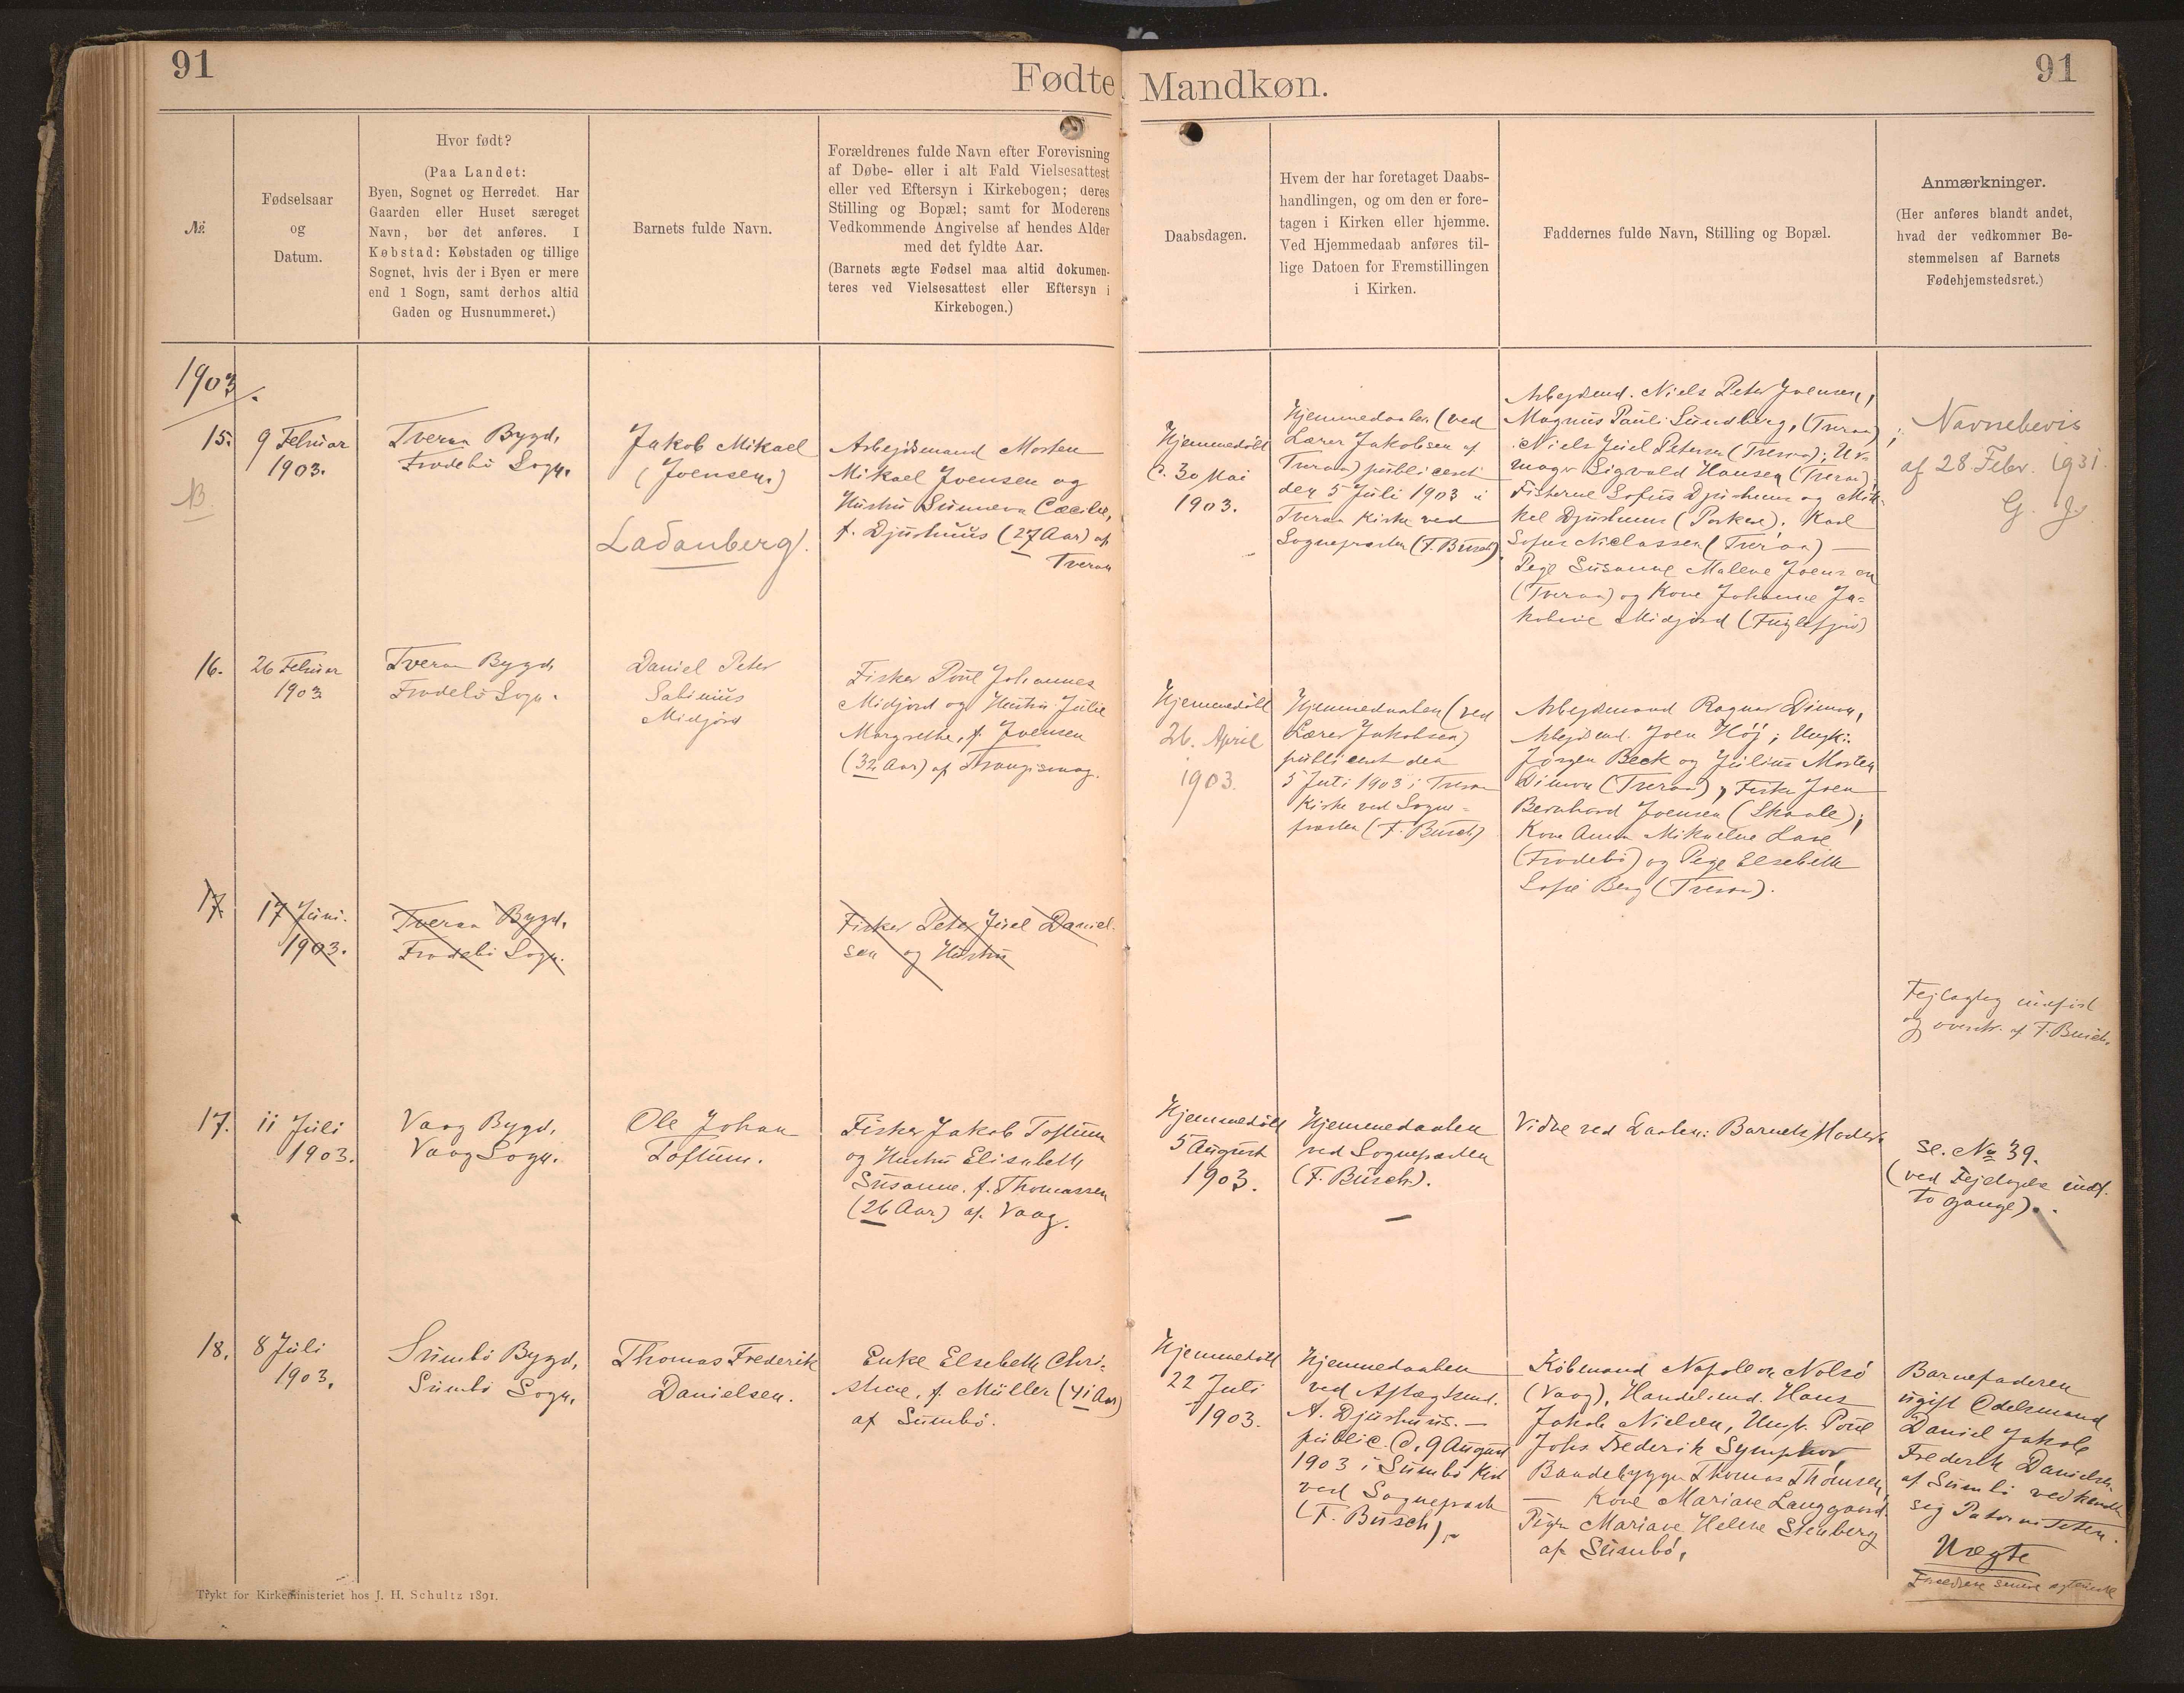 91
Fødte
Mandkøn.
91
№
Fødselsaar
og
Datum.
Hvor født?
(Paa Landet:
Byen, Sognet og Herredet. Har
Gaarden eller Huset særeget
Navn, bør det anføres. I
Købstad: Købstaden og tillige
Sognet, hvis der i Byen er mere
end 1 Sogn, samt derhos altid
Gaden og Husnummeret.)
Barnets fulde Navn.
Forældrenes fulde Navn efter Forevisning
af Døbe- eller i alt Fald Vielsesattest
eller ved Eftersyn i Kirkebogen; deres
Stilling og Bopæl; samt for Moderens
Vedkommende Angivelse af hendes Alder
med det fyldte Aar.
(Barnets ægte Fødsel maa altid dokumen-
teres ved Vielsesattest eller Eftersyn i
Kirkebogen.)
Daabsdagen.
Hvem der har foretaget Daabs-
handlingen, og om den er fore-
tagen i Kirken eller hjemme.
Ved Hjemmedaab anføres til-
lige Datoen for Fremstillingen
i Kirken.
Faddernes fulde Navn, Stilling og Bopæl.
Anmærkninger.
(Her anføres blandt andet,
hvad der vedkommer Be-
stemmelsen af Barnets
Fødehjemstedsret.)
1903
15.
NB.
9 Februar
1903.
Tveraa Bygd,
Frodebø Sogn.
Jakob Mikael
(Joensen.)
Ladanberg.
Arbejdsmand Morten
Mikael Joensen og
Hustru Sunneva Cæcilie,
f. Djurhuus (27 Aar) af
Tveraa
Hjemmedøbt
d. 30 Mai
1903.
Hjemmedaaben (ved
Lærer Jakobsen af
Tveraa) publiceret
den 5 Juli 1903 i
Tveraa Kirke ved
Sognepræsten (F. Busch)
Arbejdsmd. Niels Peter Joensen,
Magnus Pauli Sundberg, (Tveraa)
Niels Juel Petersen (Tveraa); Ur-
mager Sigvald Hansen (Tveraa);
Fiskerne Sofus Djurhuus og Mik-
kel Djurhuus (Porkere). Karl
Sofus Niclassen (Tveraa) —
Pige Susanne Malene Joensen
(Tveraa) og Kone Johanne Ja-
kobine Midjord (Fuglefjord)
Navnebevis
af 28 Febr. 1931.
G. J.
16.
26 Februar
1903
Tveraa Bygd,
Frodebø Sogn.
Daniel Peter
Sabinus
Midjord
Fisker Poul Johannes
Midjord og Hustru Julie
Margrethe, f. Joensen
(32 Aar) af Trangisvaag.
Hjemmedøbt
26. April
1903.
Hjemmedaaben (ved
Lærer Jakobsen)
publiceret den
5 Juli 1903 i Tveraa
Kirke ved Sogne-
præsten (F. Busch)
Arbejdsmand Ragnar Dimon,
Arbejdsmd. Joen Høj; Ungk.
Jørgen Beck og Julius Morten
Dimon (Tveraa), Fisker Joen
Bernhard Joensen (Skaale);
Kone Anna Mikaeline Dare
(Frodebø) og Pige Elsebeth
Sofie Berg (Tveraa).
17.
17 Juni.
1903.
Tveraa Bygd,
Frodebø Sogn.
Fisker Peter Juel Daniel-
sen og Hustru
Fejlagtig indført
og overstr. af F. Busch.
17.
11 Juli
1903.
Vaag Bygd,
Vaag Sogn.
Ole Johan
Toftum.
Fisker Jakob Toftum
og Hustru Elisabeth
Susanne, f. Thomassen
(26 Aar) af Vaag.
Hjemmedøbt
5 August
1903.
Hjemmedaaben
ved Sognepræsten
(F. Busch).
Vidne ved Daaben: Barnets Moder
se. No 39.
(ved Fejltagelse indf.
to Gange).
18.
8 Juli
1903.
Sumbø Bygd,
Sumbø Sogn.
Thomas Frederik
Danielsen.
Enke Elsebeth Chri-
stine, f. Müller (41 Aar)
af Sumbø.
Hjemmedøbt
22 Juli
1903.
Hjemmedaaben
ved Aftægtsmd.
A. Djurhuus. —
public. d. 9 August
1903 i Sumbø Kirke
ved Sognepræst
(F. Busch).
Købmand Napoleon Nolsø
(Vaag), Handelsmd. Hans
Jakob Nielsen, Ungk. Poul
Johs. Frederik Symphor,
Baadebygger Thomas Thomsen,
— Kone Mariane Langgaard.
Pige Mariane Helene Stenberg
af Sumbø.
Barnefaderen
ugift Odelsmand
Daniel Jakob
Frederik Danielsen
af Sumbø vedkendte
sig Paterniteten.
Uægte
Forældrene senere ægteviede
Trykt for Kirkeministeriet hos J. H. Schultz 1891.